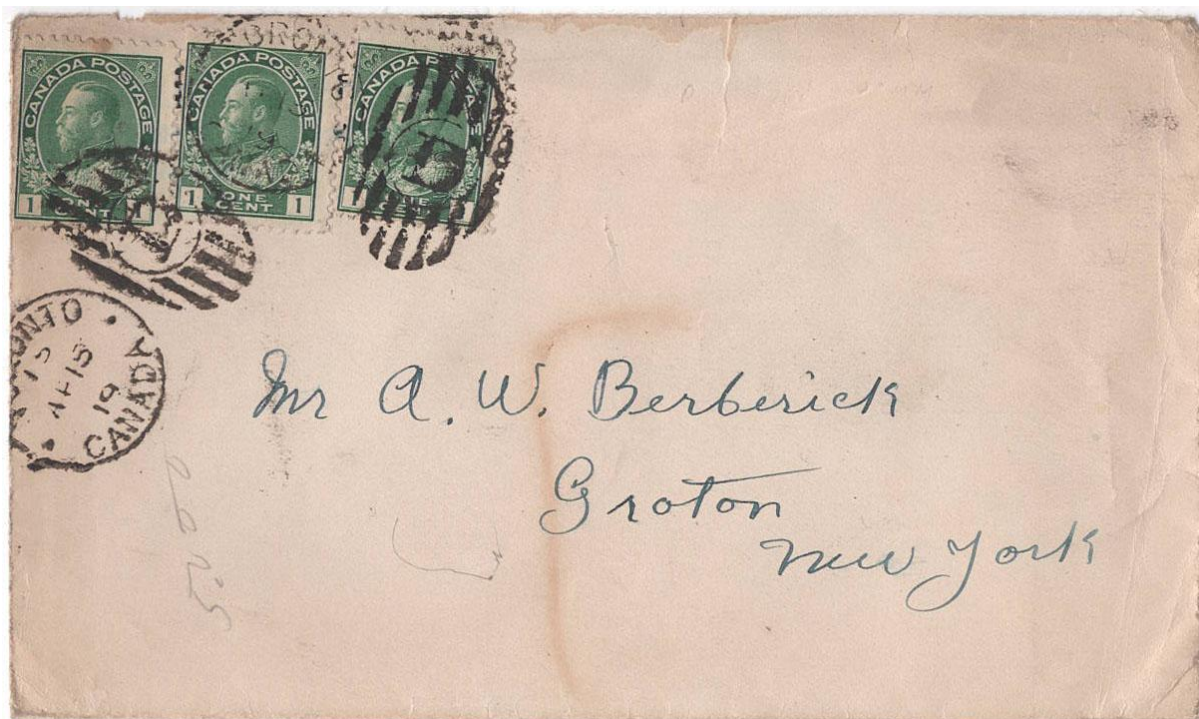 CANADA POSTAGE
1 ONE CENT 1
CANADA POSTAGE
1 ONE CENT 1
CANADA POSTAGE
1 ONE CENT 1
TORONTO
15
AP 15
19
CANADA
Mr A. W. Berberick
Groton
New York